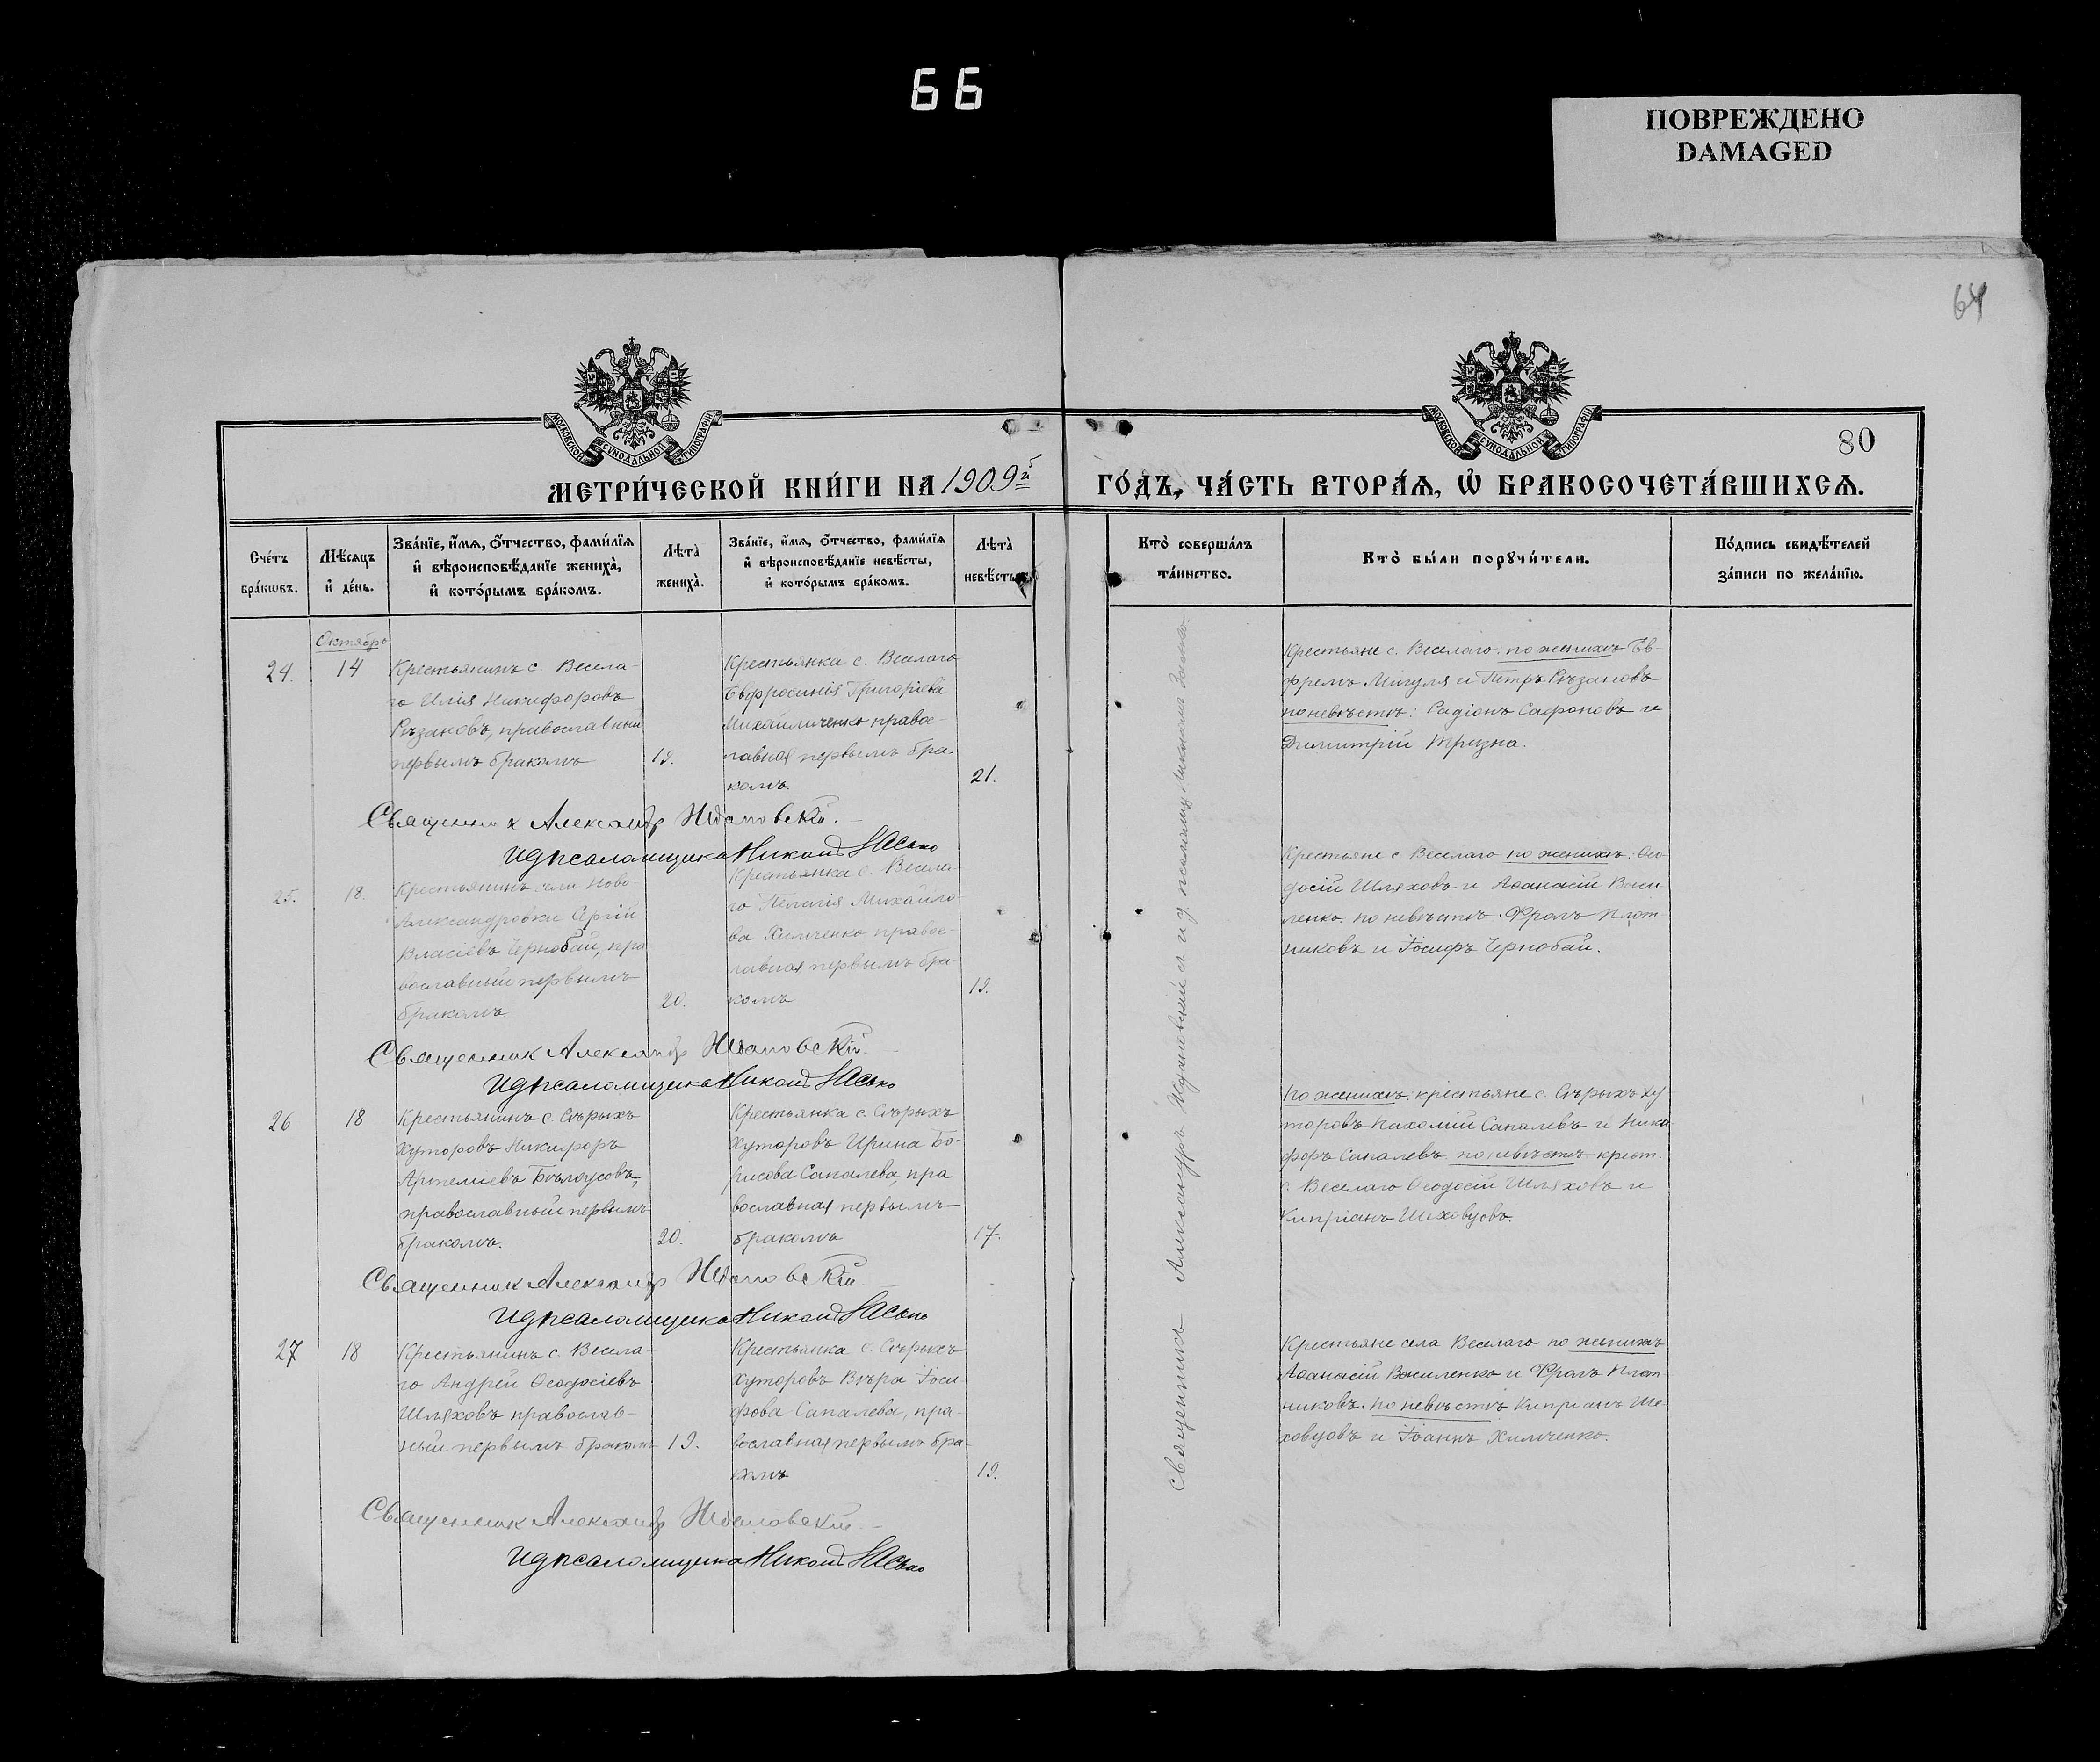 66
ПОВРЕЖДЕНО
DAMAGED
64
МОСКОВСКОЙ СУНОДАЛЬНОЙ ТИПОГРАФІИ
МОСКОВСКОЙ СУНОДАЛЬНОЙ ТИПОГРАФІИ
80
МЕТРИ́ЧЕСКОЙ КНИ́ГИ НА 1909й ГО́ДЪ, ЧА́СТЬ ВТОРА́Ѧ, Ѡ҆ БРАКОСОЧЕТА́ВШИХСѦ.
Сче́тъ бра́кѡвъ.
Мѣ́сѧцъ и҆ де́нь.
Зва́нїе, и҆́мѧ, ѻ҆́тчество, фами́лїѧ и҆ вѣроисповѣ́данїе жениха̀, и҆ кото́рымъ бра́комъ.
Лѣта̀ жениха̀.
Зва́нїе, и҆́мѧ, ѻ҆́тчество, фами́лїѧ и҆ вѣроисповѣ́данїе невѣ́сты, и҆ кото́рымъ бра́комъ.
Лѣта̀ невѣ́сты.
Кто̀ соверша́лъ та́инство.
Кто̀ бы́ли порꙋчи́тели.
По́дпись свидѣ́телей за́писи по жела́нїю.
Октября
24.
14
Крестьянинъ с. Весела-
го Илія Никифоровъ
Рѣзановъ, православный
первымъ бракомъ
19.
Крестьянка с. Веселаго
Евфросинія Григоріева
Михайличенко правос-
лавная первымъ бра-
комъ
21.
Крестьяне с. Веселаго: по женихѣ Еѳ-
фремъ Мигуля и Петръ Рѣзановъ
по невѣстѣ: Радіонъ Сафоновъ и
Димитрій Тризна.
Священник Александр
И д псаломщика
25.
18.
Крестьянинъ села Ново-
Александровки Сергій
Власіевъ Чернобай, пра
вославный первымъ
бракомъ.
20.
Крестьянка с. Весела-
го Пелагія Михайло-
ва Химченко правос-
лавная первымъ бра-
комъ
19.
Крестьяне с. Веселаго по женихѣ: Ѳео
досій Шляховъ и Аѳанасій Васи
ленко. по невѣстѣ: Фролъ Плот
никовъ и Іосифъ Чернобай.
Священник Александр
И д псаломщика
26
18
Крестьянинъ с. Сѣрыхъ
Хуторовъ Никифоръ
Артемиевъ Бѣлоусовъ,
православный первымъ
бракомъ.
20.
Крестьянка с. Сѣрыхъ
Хуторовъ Ирина Бо-
рисова Сапалева, пра
вославная первымъ
бракомъ
17.
По женихѣ: крестьяне с. Сѣрыхъ Ху
торовъ Пахомій Сапалевъ и Ники
форъ Сапалевъ по невѣстѣ крест.
с. Веселаго Ѳеодосій Шляховъ и
Кипріанъ Шеховцовъ.
Священник Александр
И д псаломщика
27
18
Крестьянинъ с. Весела-
го Андрей Ѳеодосіевъ
Шляховъ православ-
ный первымъ бракомъ
19.
Крестьянка с. Сѣрыхъ
Хуторовъ Вѣра Іоси-
фова Сапалева, пра-
вославная первымъ бра-
комъ
19.
Крестьяне села Веселаго по женихѣ
Аѳанасій Василенко и Фролъ Плот
никовъ. по невѣстѣ Кипріанъ Ше-
ховцовъ и Іоаннъ Химченко.
Священник Александр
И д псаломщика
Священникъ Александръ